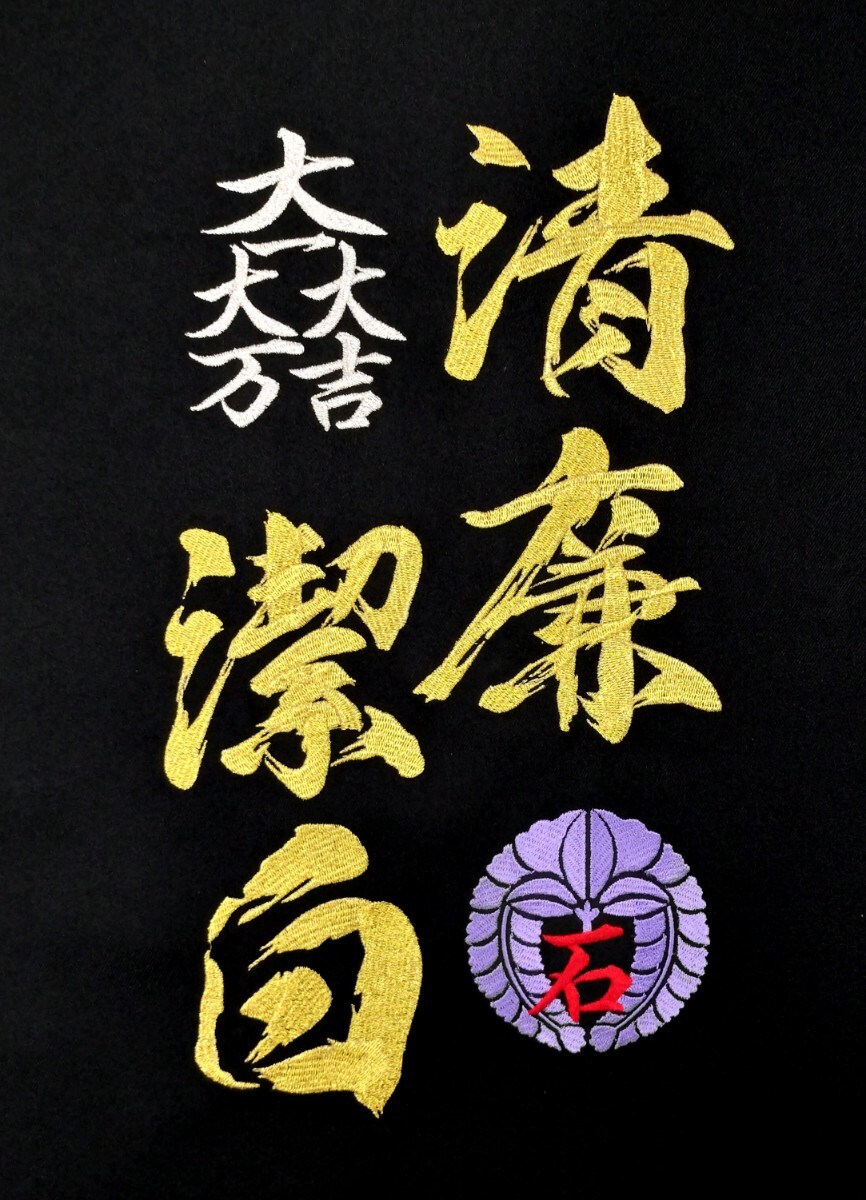 清廉
石
大一大万大吉
潔白